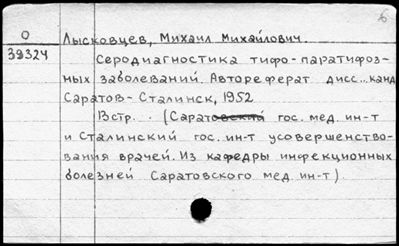 О Лысковцев, Михаил Михайлович.
39324 Серодиагностика тифо-паратифоз-
ных заболеваний. Автореферат дисс... канд
Саратов-Сталинск, 1952
В стр. . (Саратовский гос. мед. ин-т
и Сталинский гос. ин-т усовершенство-
вания врачей. Из кафедры инфекционных
болезней Саратовского мед. ин-т).